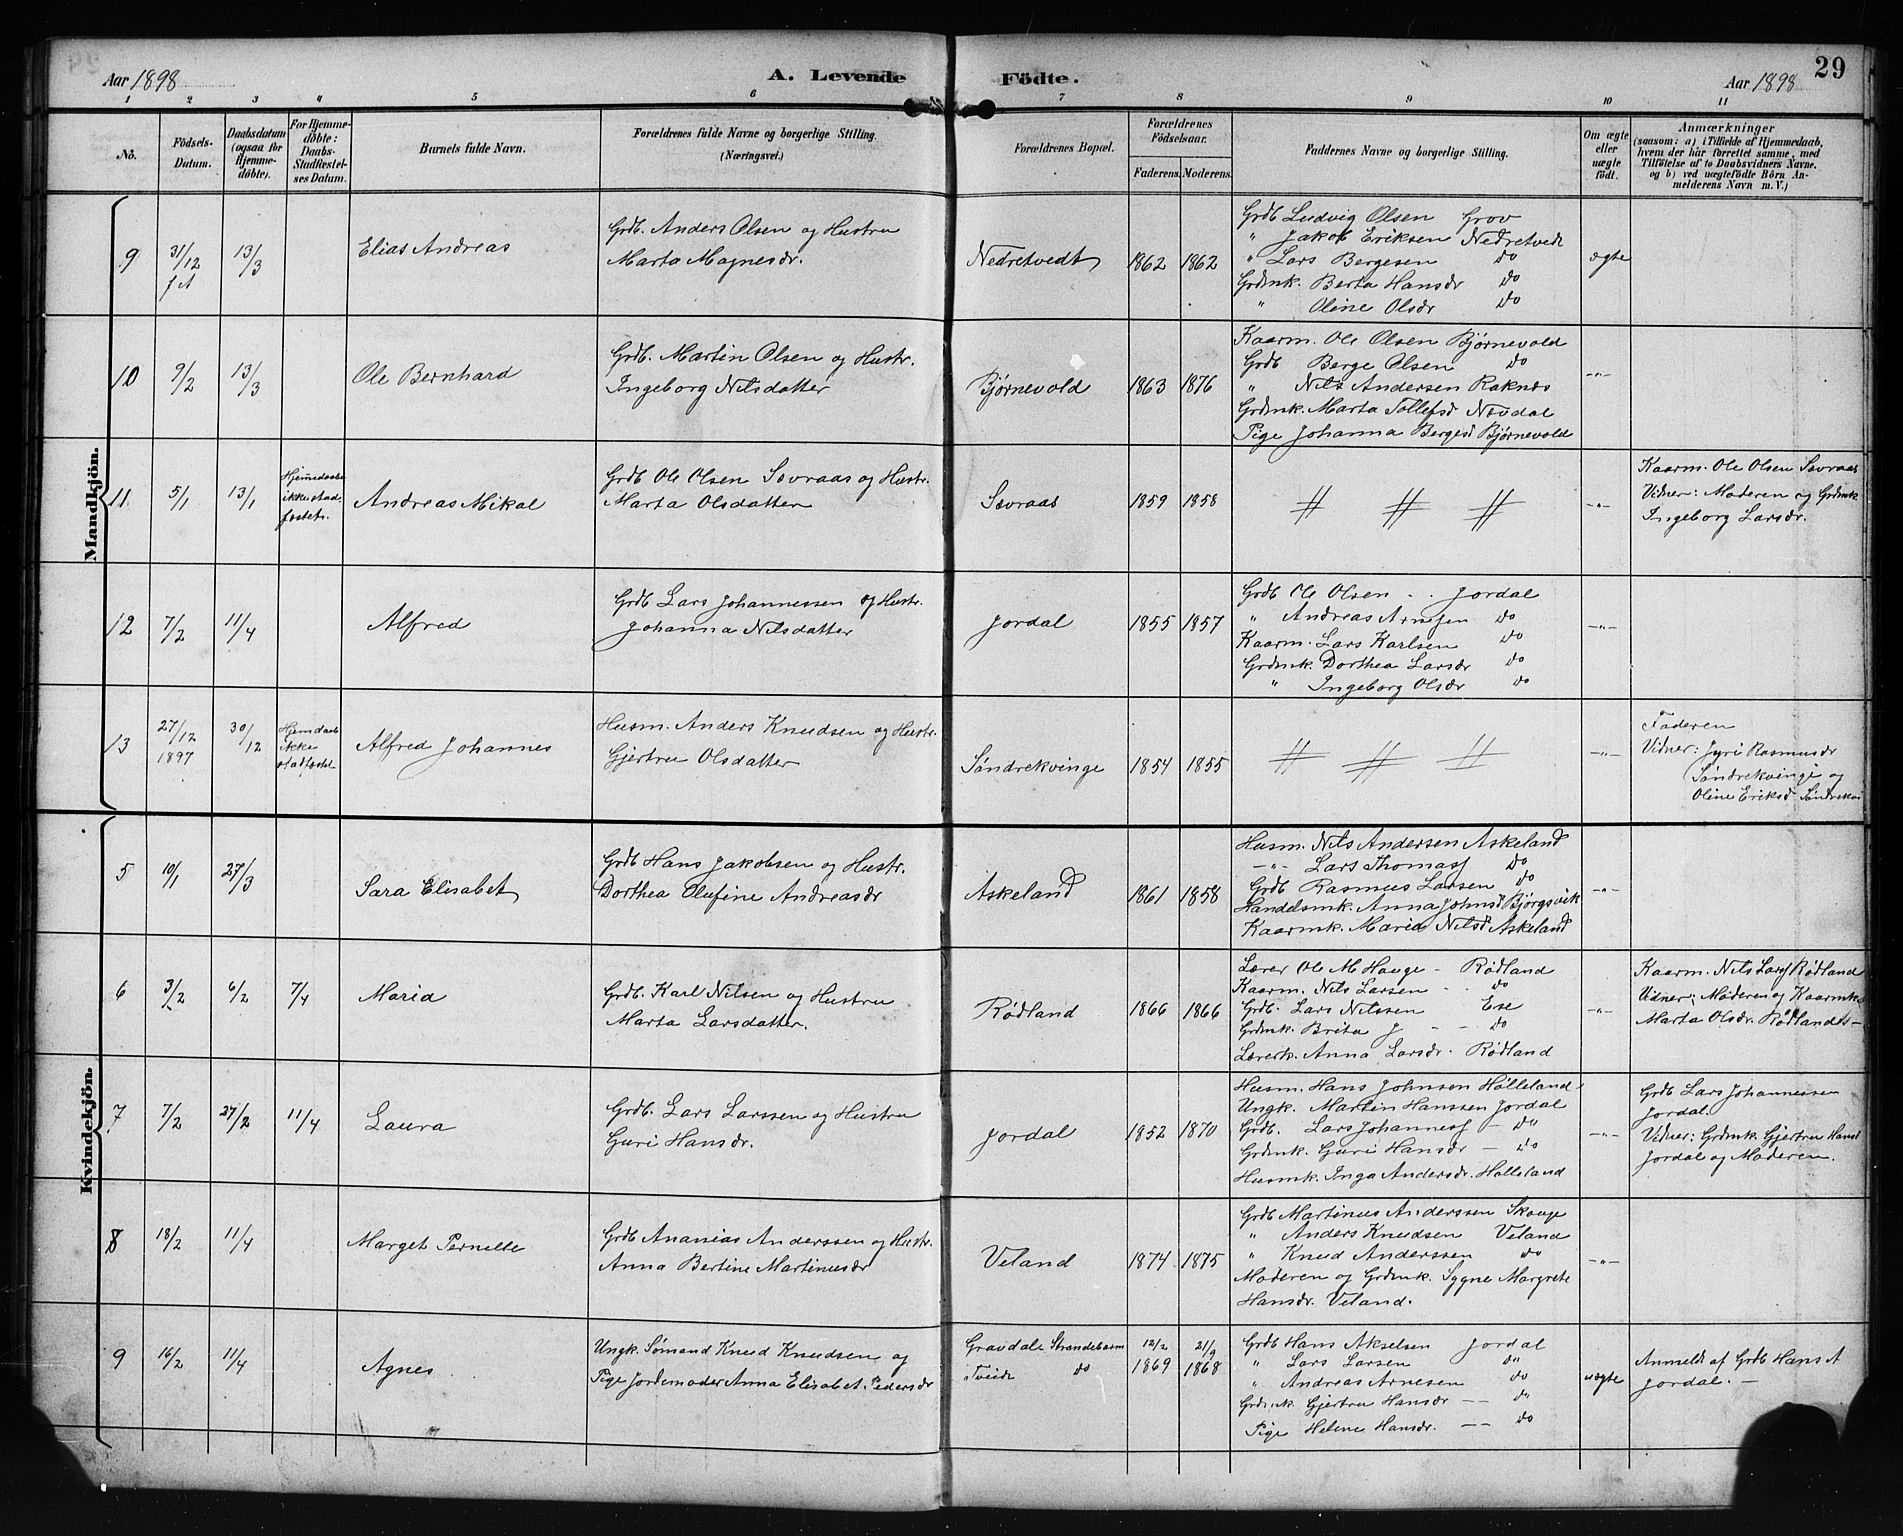 Aar 1898 A. Levende Födte. Aar 1898 29
1 2 3 4 5 6 7 8 9 10 11
No.
Födsels-Datum.
Daabsdatum (ogsaa for Hjemmedöbte).
For Hjemmedöbte: Daabs-Stadfæstelses Datum.
Barnets fulde Navn.
Forældrenes fulde Navne og borgerlige Stilling.
(Næringsvei.)
Forældrenes Bopæl.
Forældrenes Födselsaar.
Faderens. Moderens.
Faddernes Navne og borgerlige Stilling.
Om ægte eller uægte födt.
Anmærkninger
(saasom: a) i Tilfælde af Hjemmedaab,
hvem der har forrettet samme, med
Tilföielse af to Daabsvidners Navne.
og b) ved uægtefödte Börn An-
melderens Navn m. V.)
Mandkjön.
9 31/12 13/3 Elias Andreas
Grdb. Anders Olsen og Hustru
Marta Magnesdr.
Nedretvedt 1862 1862
Grdb Ludvig Olsen Grov
" Jakob Eriksen Nedretvedt
" Lars Bergesen do
Grdmk. Berta Hansdr do
" Oline Olsdr do
ægte
10 9/2 13/3 Ole Bernhard
Grdb. Martin Olsen og Hustr.
Ingeborg Nilsdatter
Bjørnevold 1863 1876
Kaarm. Ole Olsen Bjørnevold
Grdb Berge Olsen do
" Nils Andersen Raknes
Grdmk. Marta Tollefsd Nævdal
Pige Johanna Bergesd Bjørnevold
-"-
11 5/1 13/1 Hjemmedaab ikke stadfæstet. Andreas Mikal
Grdb Ole Olsen Sævraas og Hustr.
Marta Olsdatter
Sævraas 1859 1858
-"-
Kaarm. Ole Olsen Sævraas
Vidner: Moderen og Grdmk
Ingeborg Larsdr.
12 7/2 11/4 Alfred
Grdb Lars Johannessen og Hustr.
Johanna Nilsdatter
Jordal 1855 1857
Grdb Ole Olsen Jordal
" Andreas Arnesen do
Kaarm. Lars Karlsen do
Grdmk. Dorthea Larsdr do
" Ingeborg Olsdr do
-"-
13 27/12 1897 30/12 Hjemdaab ikke stadfæstet Alfred Johannes
Husm. Anders Knudsen og Hustr.
Gjertru Olsdatter
Søndrekvinge 1854 1855
-"-
Faderen
Vidner: Jyri Rasmusdr
Søndrekvinge og
Oline Eriksd Søndrekvi
Kvindekjön.
5 10/1 27/3 Sara Elisabet
Grdb Hans Jakobsen og Hustr.
Dorthea Olufine Andreasdr
Askeland 1861 1858
Husm. Nils Andersen Askeland
-"- Lars Thomass do
Grdb Rasmus Larsen do
Handelsmk. Anna Johnsd Bjørgsvik
Kaarmk. Maria Nilsd Askeland
-"-
6 3/2 6/2 7/4 Maria
Grdb. Karl Nilsen og Hustru
Marta Larsdatter.
Rødland 1866 1866
Lærer Ole M Hauge - Rødland
Kaarm. Nils Larsen - do
Grdb. Lars Nilssen Ese
Grdmk. Brita J - - do
Lærerk. Anna Larsdr. Rødland
-"-
Kaarm. Nils Larss Rødland
Vidner: Moderen og Kaarmk.
Marta Olsdr. Rødland
7 7/2 27/2 11/4 Laura
Grdb. Lars Larssen og Hustru
Guri Hansdr.
Jordal 1852 1870
Husm. Hans Johnson Hølleland
Ungk. Martin Hanssen Jordal
Grdb. Lars Johanness - do
Grdmk. Guri Hansdr - do
Husmk. Inga Andersdr. Hølleland
-"-
Grdb Lars Johannessen
Jordal.
Vidner: Grdmk Gjertru Hansd
Jordal og Moderen.
8 18/2 11/4 Marget Pernille
Grdb Ananias Anderssen og Hustr.
Anna Bertine Martinusdr
Veland 1874 1875
Grdb Martinus Anderssen Skauge
" Anders Knudsen Veland
" Knud Anderssen do
Moderen og Grdmk. Sygne Margrete
Hansdr. Veland.
-"-
9 16/2 11/4 Agnes
Ungk. Sømand Knud Knudsen og
Pige Jordemoder Anna Elisabet Pedersdr
Gravdale Strandebarm
Tveide do
12/2 1869 21/9 1868
Grdb Hans Akselsen Jordal
" Lars Larsen do
" Andreas Arnesen do
Grdmk Gjertru Hansdr -- do
Pige Helene Hansdr. -- do
uægte
Anmeldt af Grdb Hans A
Jordal. -